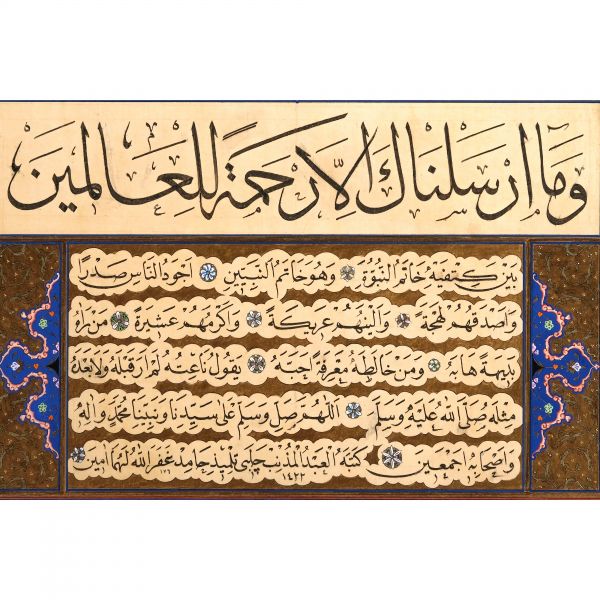 وَمَا اَرْسَلْنَاكَ اِلَّا رَحْمَةً لِلْعَالَمِينَ
بين كتفيه خاتم النبوة وهو خاتم النبيين اجود الناس صدرا
واصدقهم لهجة والينهم عريكة واكرمهم عشيرة من راه
بديهة هابه ومن خالطه معرفة احبه يقول ناعته لم ار قبله ولا بعده
مثله صلى الله عليه وسلم اللهم صل وسلم على سيدنا ونبينا محمد واله
واصحابه اجمعين كتبه العبد المذنب چلبي تلميذ حامد غفر الله لهما امين
١٤٢٢